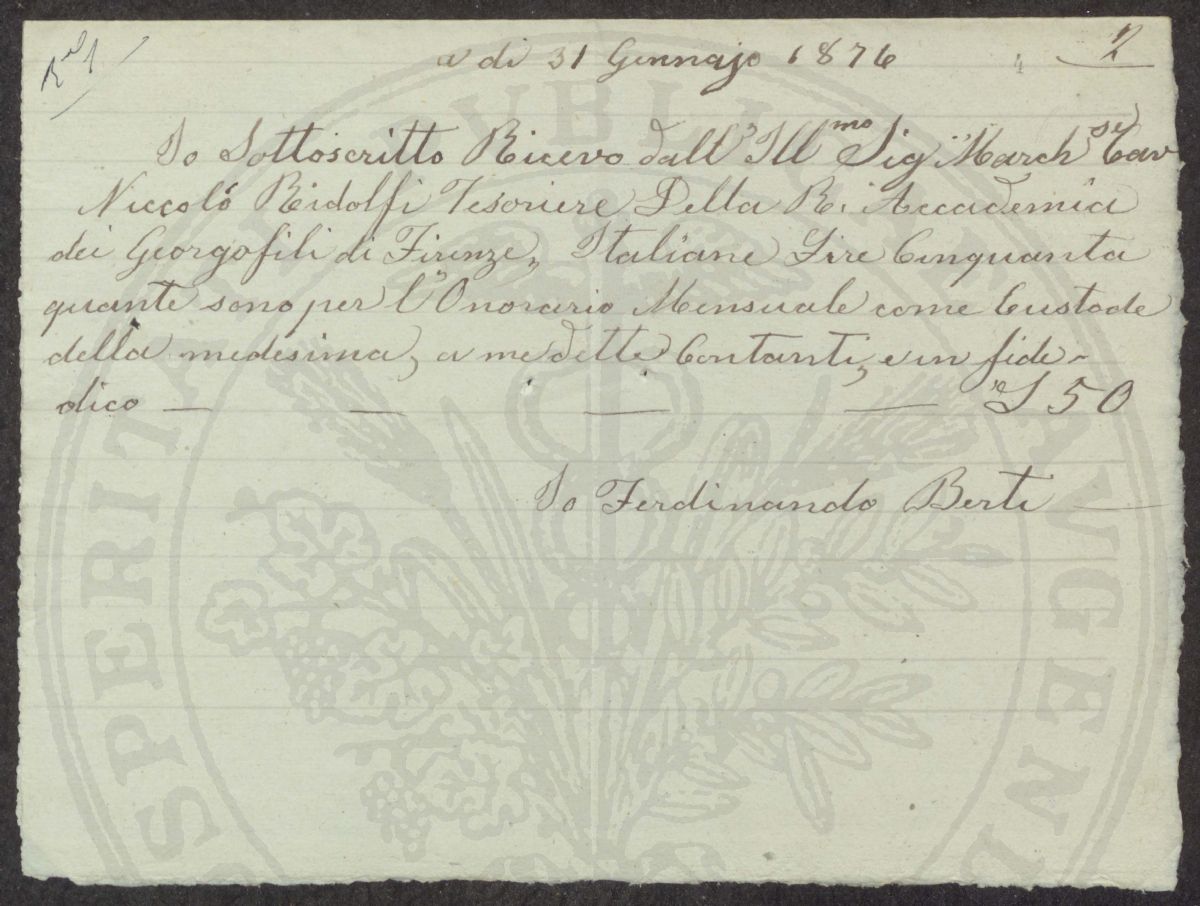 a di 31 Gennajo 1876
4
2
Io Sottoscritto Ricevo dall' Ill.mo Sig. March.se Cav
Niccolò Ridolfi Tesoriere Della R. Accademia
dei Georgofili di Firenze, Italiane Lire Cinquanta
quante sono per l'Onorario Mensuale come Custode
della medesima, a me detti Contanti, e in fide
dico — — — — £ 50
Io Ferdinando Berti
PUBLICAE AUGEN
SPERITATI